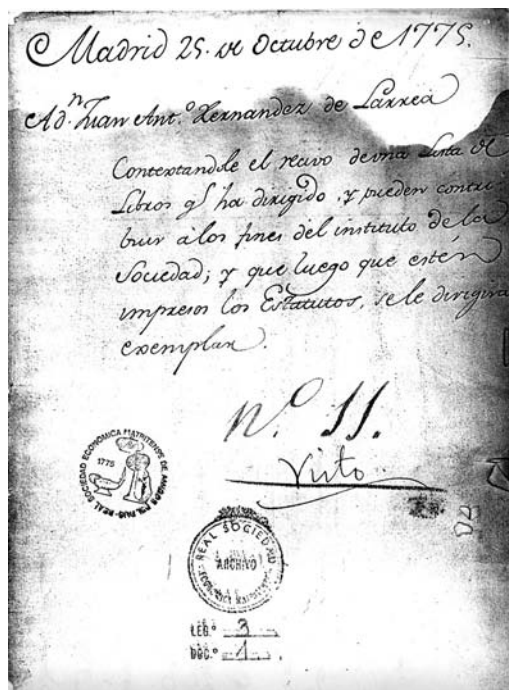 Madrid 25. de Octubre de 1775.
A d.n Juan Ant.o Hernandez de Larrea
Contextandole el recivo de una Lista de
Libros q.e ha dirigido, y pueden contri
buir à los fines del instituto de la
Sociedad; y que luego que estén
impresos los Estatutos, se le dirigira
exemplar.
n.o 11.
Visto
REAL SOCIEDAD ECONOMICA MATRITENSE DE AMIGOS DEL PAIS
1775
REAL SOCIEDAD
ARCHIVO
LEG.o 3
DOC.o 1